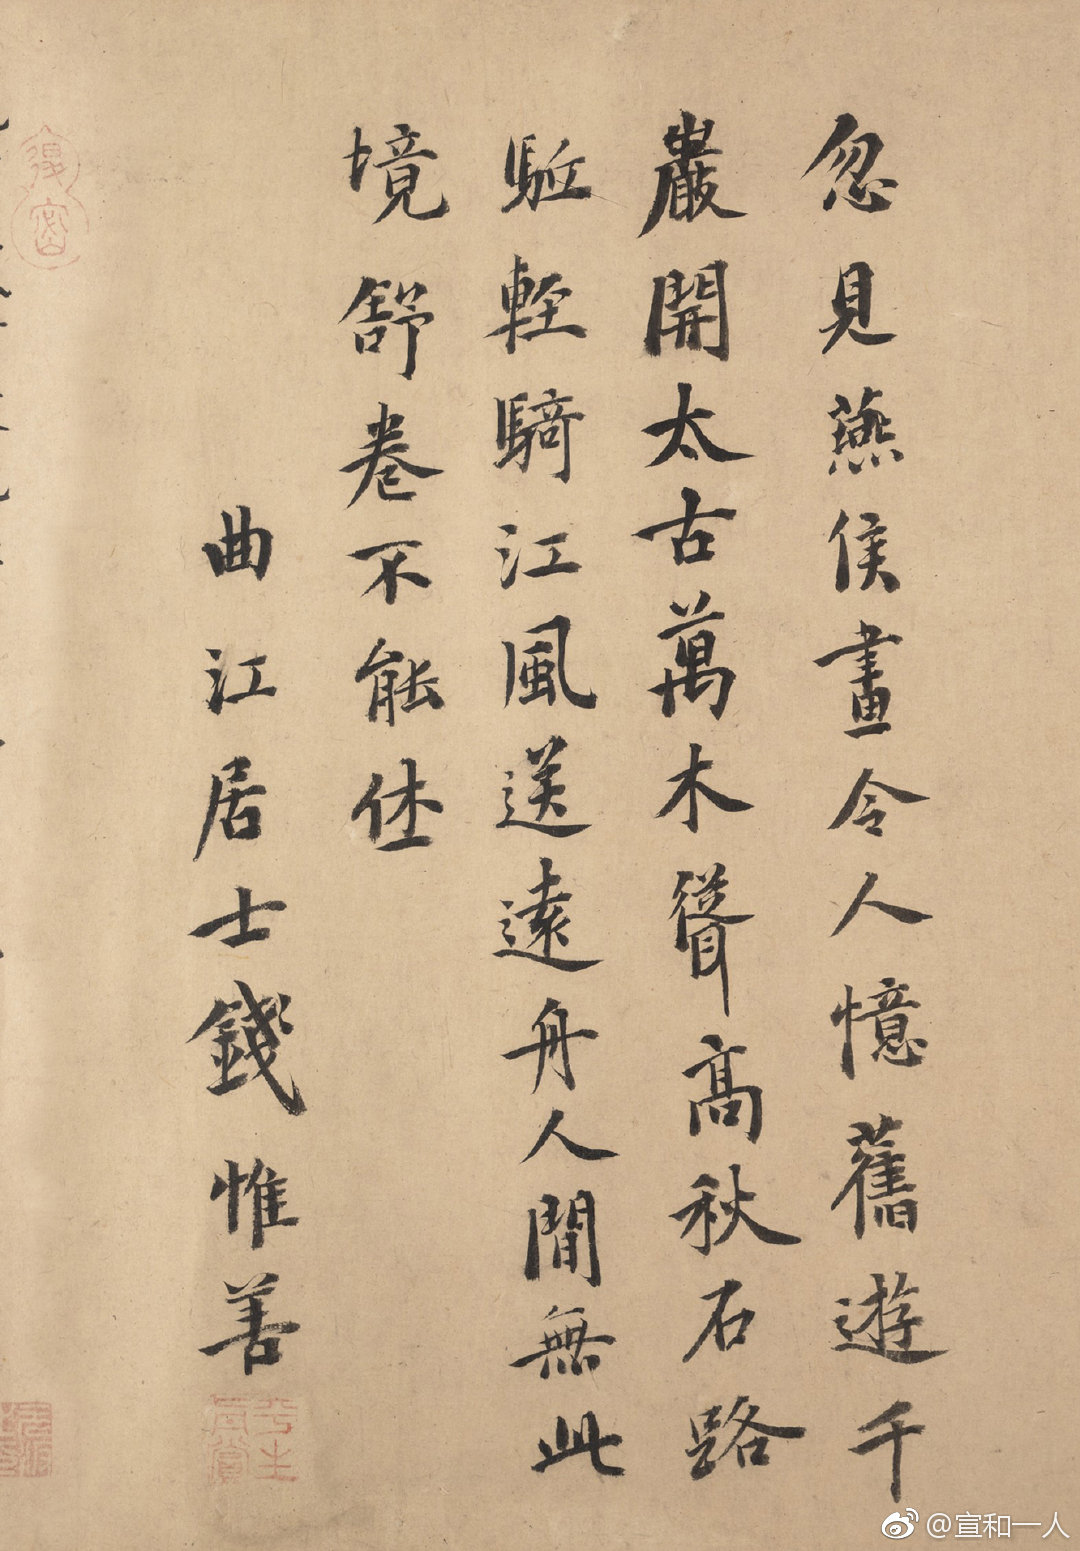 忽見燕侯畫令人憶舊遊千
巖開太古萬木聳高秋石路
駈輕騎江風送遠舟人間無此
境舒卷不能休
曲江居士錢惟善
@宣和一人